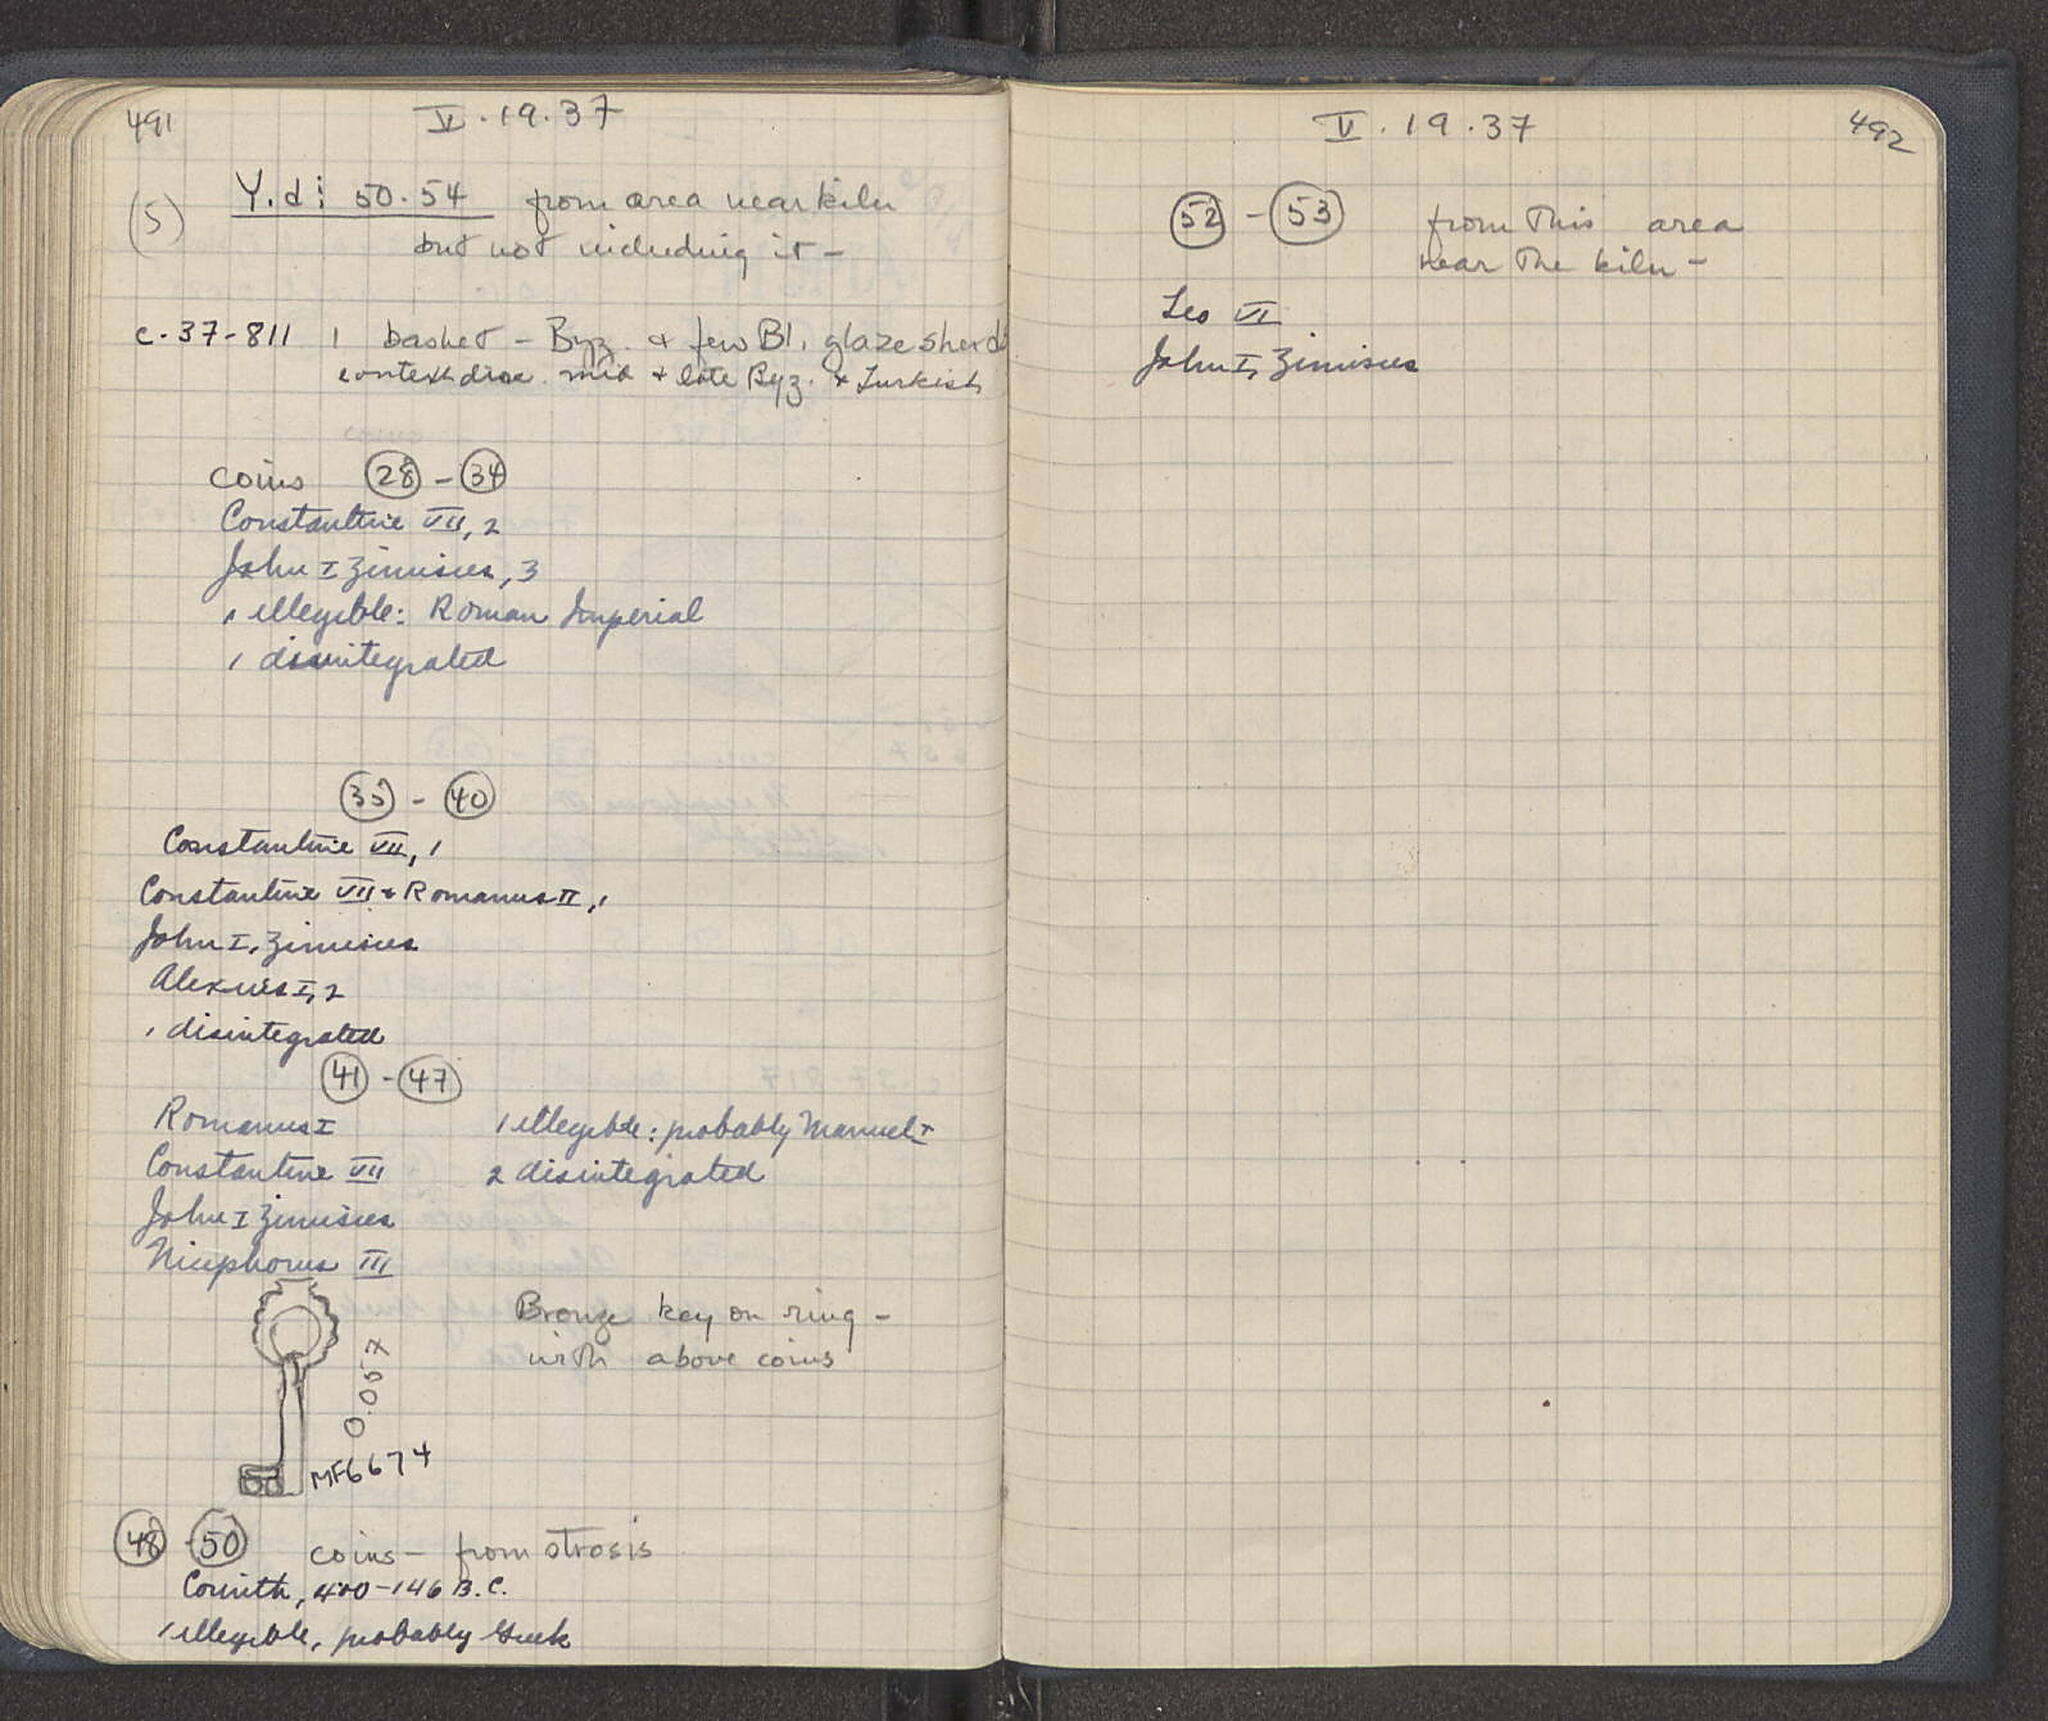 491
V.19.37
(5) Y.d: 50.54 from area near kiln
but not including it -
C-37-811 1 basket - Byz. & few Bl. glaze sherds
context disc. mid & late Byz. & Turkish
coins 28 - 34
Constantine VII, 2
John I Zimisces, 3
1 illegible: Roman Imperial
1 disintegrated
35 - 40
Constantine VII, 1
Constantine VII & Romanus II, 1
John I, Zimisces
Alexius I, 2
1 disintegrated
41 - 47
Romanus I
Constantine VII
John I Zimisces
Nicephorus III
1 illegible: probably Manuel I
2 disintegrated
Bronze key on ring -
with above coins
0.057
MF6674
48 - 50 coins - from strosis
Corinth, 400-146 B.C.
1 illegible, probably Greek
V.19.37
492
52 - 53 from this area
near the kiln -
Leo VI
John I, Zimisces